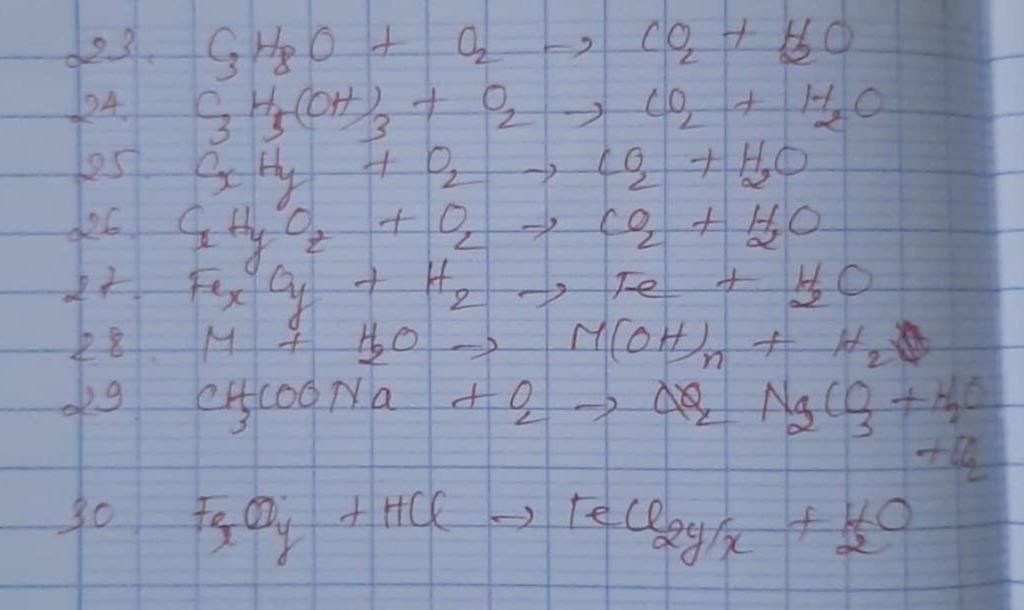 23. C₃H₈O + O₂ → CO₂ + H₂O
24. C₃H₅(OH)₃ + O₂ → CO₂ + H₂O
25 CₓHy + O₂ → CO₂ + H₂O
26. CₓHyOz + O₂ → CO₂ + H₂O
27. FeₓOy + H₂ → Fe + H₂O
28. M + H₂O → M(OH)ₙ + H₂
29 CH₃COONa + O₂ → Na₂CO₃ + H₂O
+ CO₂
30 FeₓOy + HCl → FeCl₂y/ₓ + H₂O